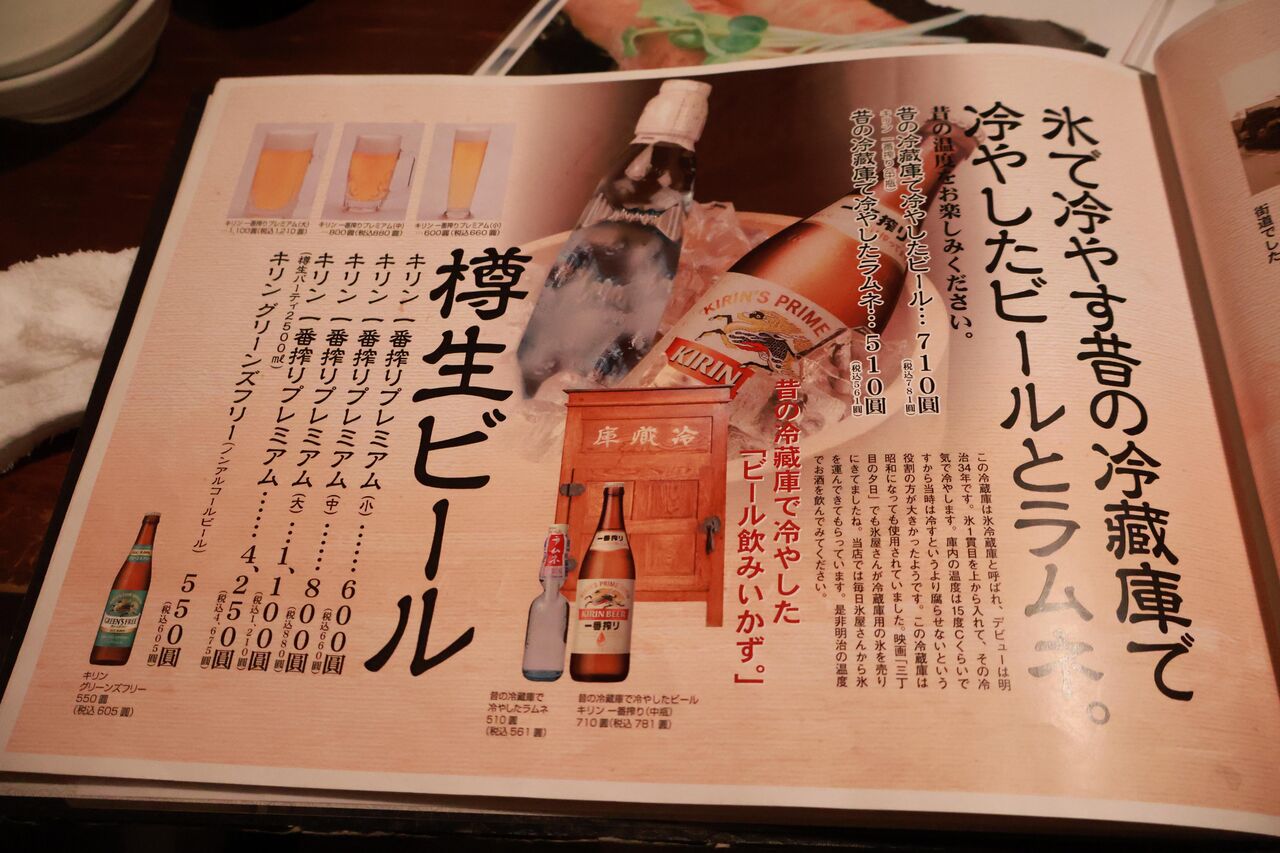 氷で冷やす昔の冷蔵庫で
冷やしたビールとラムネ。
昔の温度をお楽しみください。
昔の冷蔵庫で冷やしたビール…710圓
キリン 一番搾り(中瓶)
(税込781圓)
昔の冷蔵庫で冷やしたラムネ…510圓
(税込561圓)
この冷蔵庫は氷冷蔵庫と呼ばれ、デビューは明
治34年です。氷1貫目を上から入れて、その冷
気で冷やします。庫内の温度は15度Cくらいで
すから当時は冷すというより腐らせないという
役割の方が大きかったようです。この冷蔵庫は
昭和になっても使用されていました。映画「三丁
目の夕日」でも氷屋さんが冷蔵庫用の氷を売り
にきてましたね。当店では毎日氷屋さんから氷
を運んできてもらっています。是非明治の温度
でお酒を飲んでみてください。
昔の冷蔵庫で冷やした
「ビール飲みいかず。」
KIRIN'S PRIME
KIRIN
搾り
庫蔵冷
ラムネ
一番搾り
KIRIN'S PRIME
KIRIN BEER
一番搾り
昔の冷蔵庫で
冷やしたラムネ
510圓
(税込561圓)
昔の冷蔵庫で冷やしたビール
キリン 一番搾り(中瓶)
710圓(税込781圓)
樽生ビール
キリン 一番搾りプレミアム(小)…600圓
(税込660圓)
キリン 一番搾りプレミアム(中)…800圓
(税込880圓)
キリン 一番搾りプレミアム(大)…1,100圓
(税込1,210圓)
キリン 一番搾りプレミアム………4,250圓
(樽生パーティ2500㎖)
(税込4,675圓)
キリン グリーンズフリー(ノンアルコールビール) 550圓
(税込605圓)
キリン 一番搾りプレミアム(大)
…1,100圓(税込1,210圓)
キリン 一番搾りプレミアム(中)
……800圓(税込880圓)
キリン 一番搾りプレミアム(小)
……600圓(税込660圓)
GREEN'S FREE
キリン
グリーンズフリー
550圓
(税込605圓)
街道でした